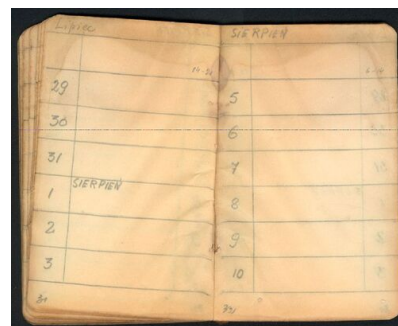 Lipiec
29
30
31
1 SIERPIEŃ
2
3
31
SIERPIEŃ
5
6
7
8
9
10